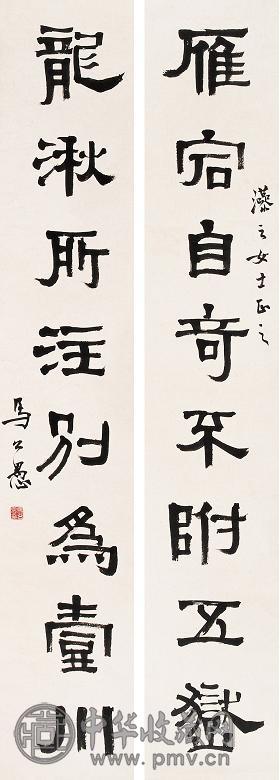 雁宕自奇不附五嶽
之女士正之
龍湫所注別為壹川
馬公愚
中华收藏网
www.pmv.cn